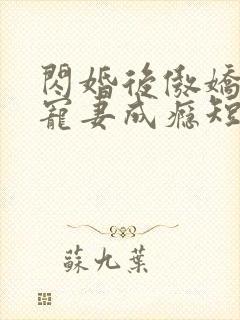 閃婚後傲嬌
寵妻成癮短
蘇九葉